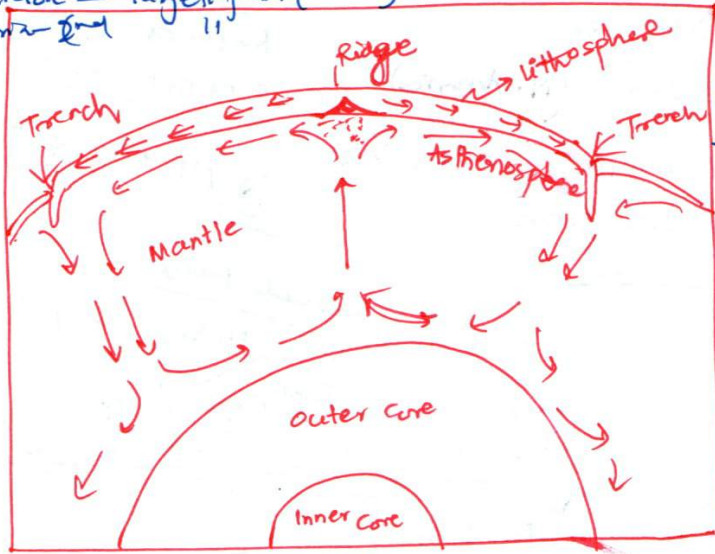 Ridge
Lithosphere
Trench
Trench
Asthenosphere
Mantle
Outer Core
Inner Core